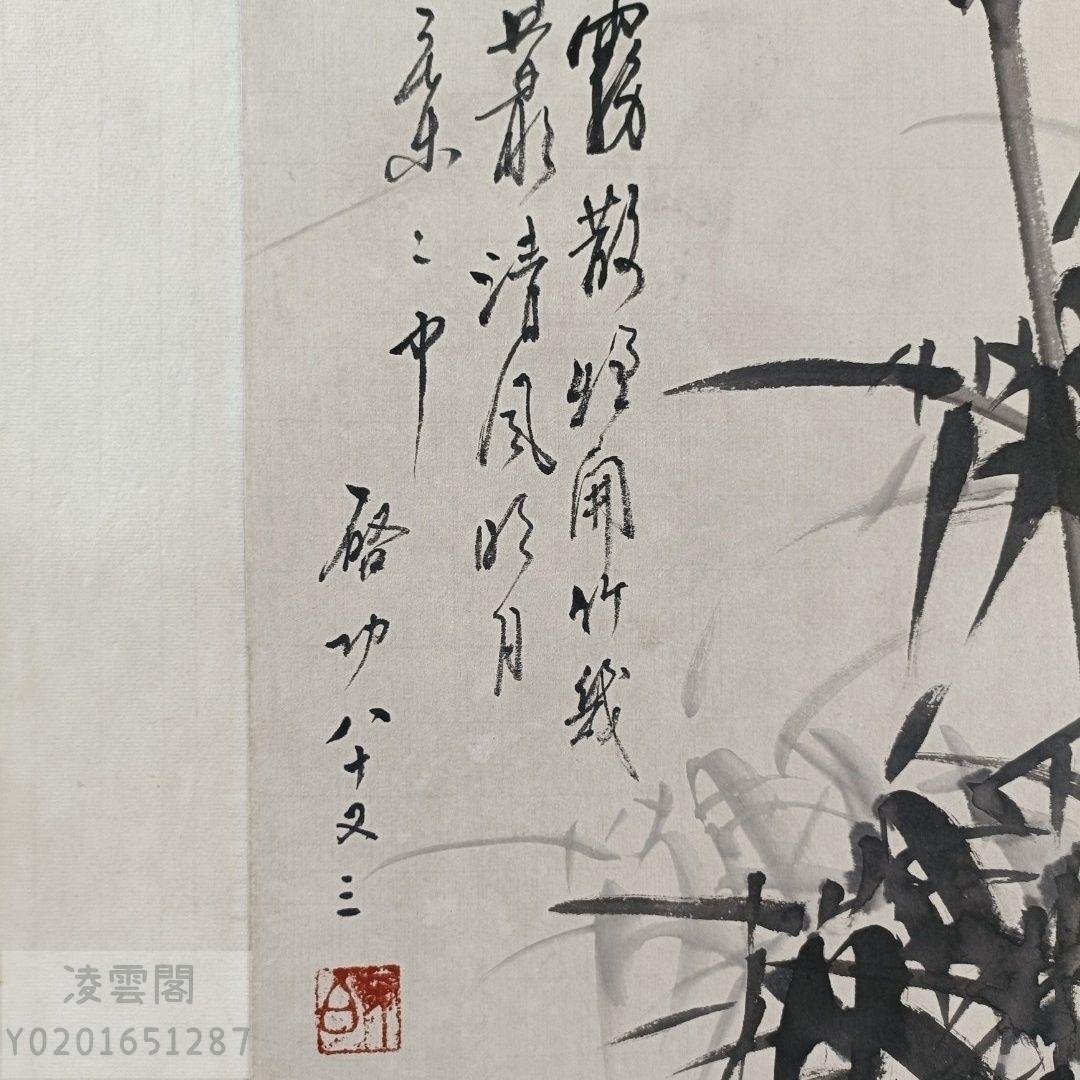 霧散煙開竹幾
叢清風明月
之中
啓功八十又三
凌雲閣
Y0201651287